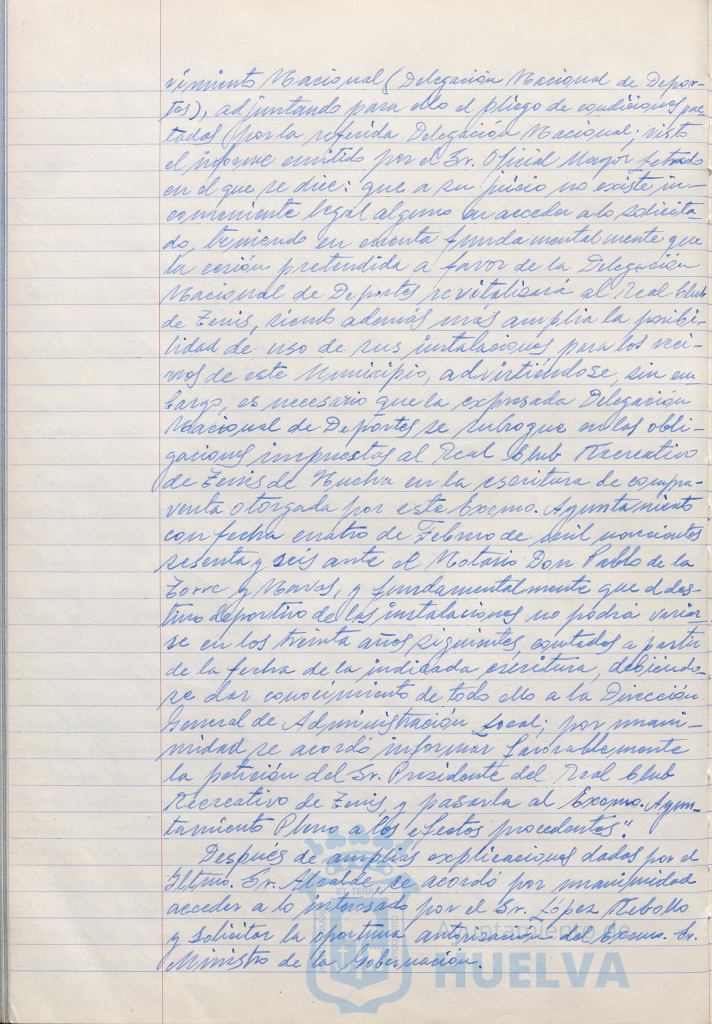 vimiento Nacional (Delegación Nacional de Depor-
tes), adjuntando para ello el pliego de condiciones pac-
tadas por la referida Delegación Nacional; visto
el informe emitido por el Sr. Oficial Mayor Letrado
en el que se dice: que a su juicio no existe in-
conveniente legal alguno en acceder a lo solicita-
do, teniendo en cuenta fundamentalmente que
la cesión pretendida a favor de la Delegación
Nacional de Deportes revitalizará al Real Club
de Tenis, siendo además más amplia la posibi-
lidad de uso de sus instalaciones para los veci-
nos de este Municipio, advirtiéndose, sin em-
bargo, es necesario que la expresada Delegación
Nacional de Deportes se subrogue en las obli-
gaciones impuestas al Real Club Recreativo
de Tenis de Huelva en la escritura de compra-
venta otorgada por este Excmo. Ayuntamiento
con fecha cuatro de Febrero de mil novecientos
sesenta y seis ante el Notario Don Pablo de la
Torre y Navas, y fundamentalmente que el des-
tino deportivo de las instalaciones no podrá variar-
se en los treinta años siguientes, contados a partir
de la fecha de la indicada escritura, debiéndo-
se dar conocimiento de todo ello a la Dirección
General de Administración Local; por unani-
midad se acordó informar favorablemente
la petición del Sr. Presidente del Real Club
Recreativo de Tenis y pasarla al Excmo. Ayun-
tamiento Pleno a los efectos procedentes".
Después de amplias explicaciones dadas por el
Iltmo. Sr. Alcalde, se acordó por unanimidad
acceder a lo interesado por el Sr. López Rebollo
y solicitar la oportuna autorización del Excmo. Sr.
Ministro de la Gobernación.
Ayuntamiento de
HUELVA